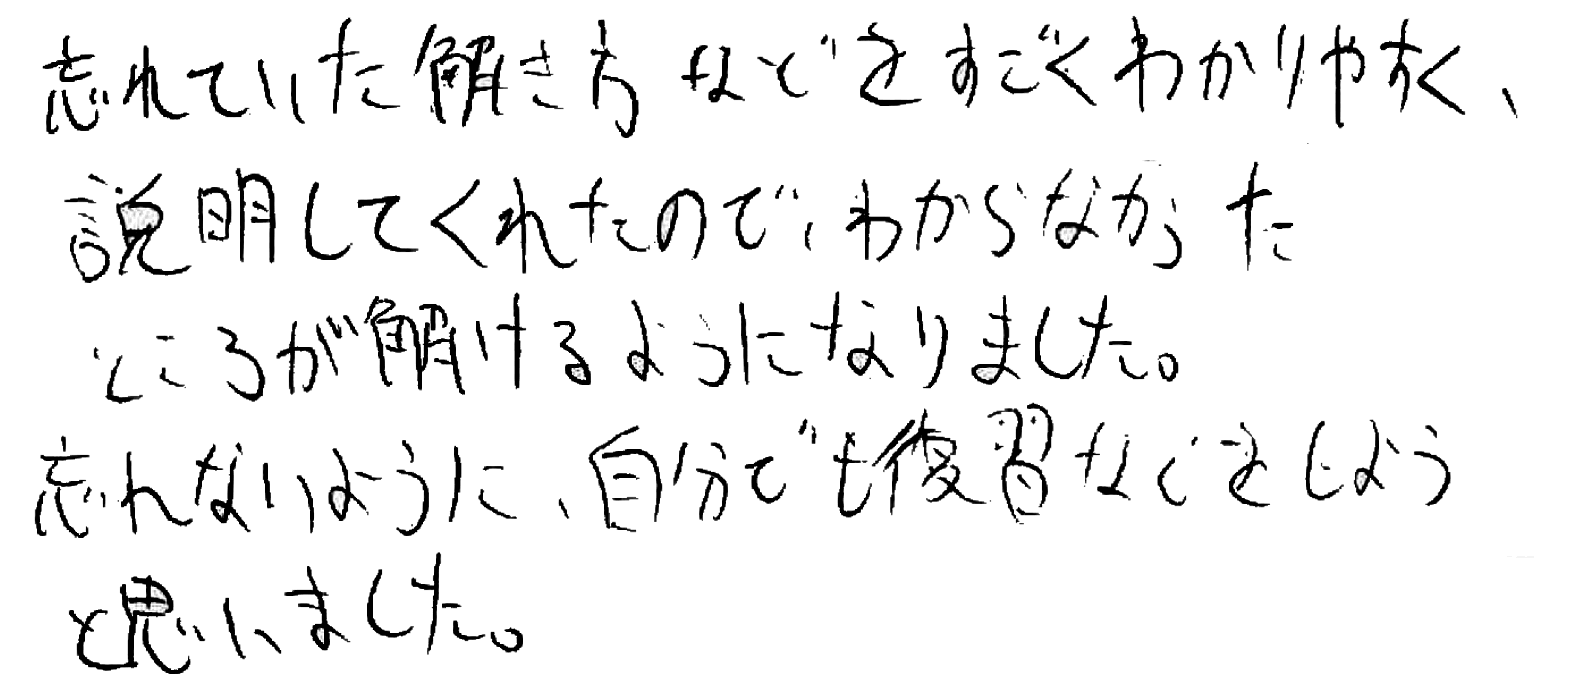 忘れていた解き方などをすごくわかりやすく、
説明してくれたので、わからなかった
ところが解けるようになりました。
忘れないように、自分でも復習などをしよう
と思いました。